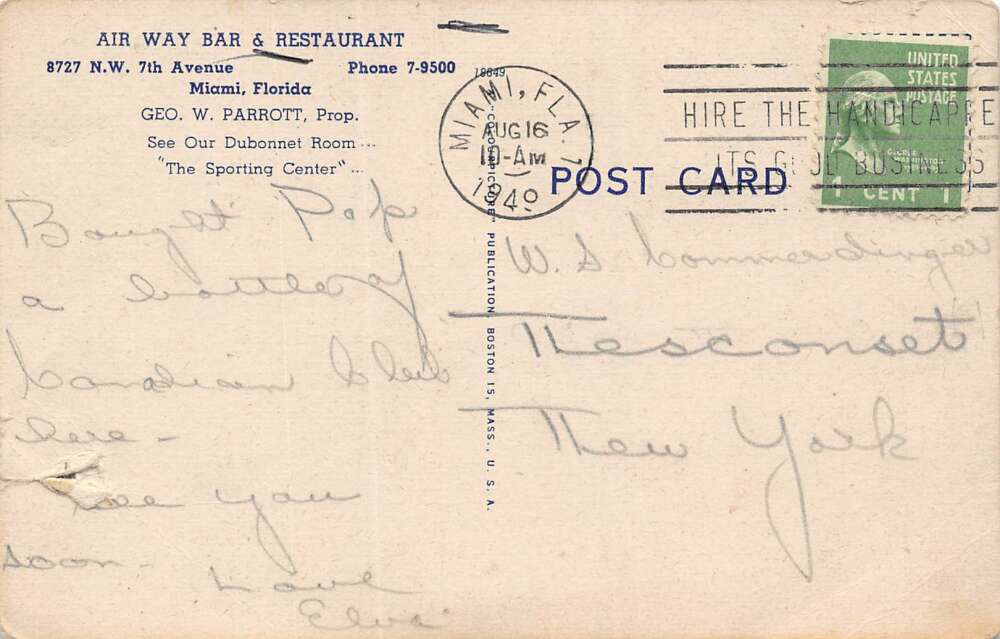 AIR WAY BAR & RESTAURANT
8727 N.W. 7th Avenue Phone 7-9500
Miami, Florida
GEO. W. PARROTT, Prop.
See Our Dubonnet Room ...
"The Sporting Center" ...
Bought Pop
a bottle of
Canadian Club
here -
See you
soon -
Love
Elva
18649
"COLOURPICTURE" PUBLICATION, BOSTON 15, MASS., U. S. A.
MIAMI, FLA. 1
AUG 16
10-AM
1949
HIRE THE HANDICAPPE
ITS GOOD BUSINESS
UNITED
STATES
POSTAGE
GEORGE
WASHINGTON
1 CENT 1
POST CARD
W. S Commerdinger
Nesconset
New York